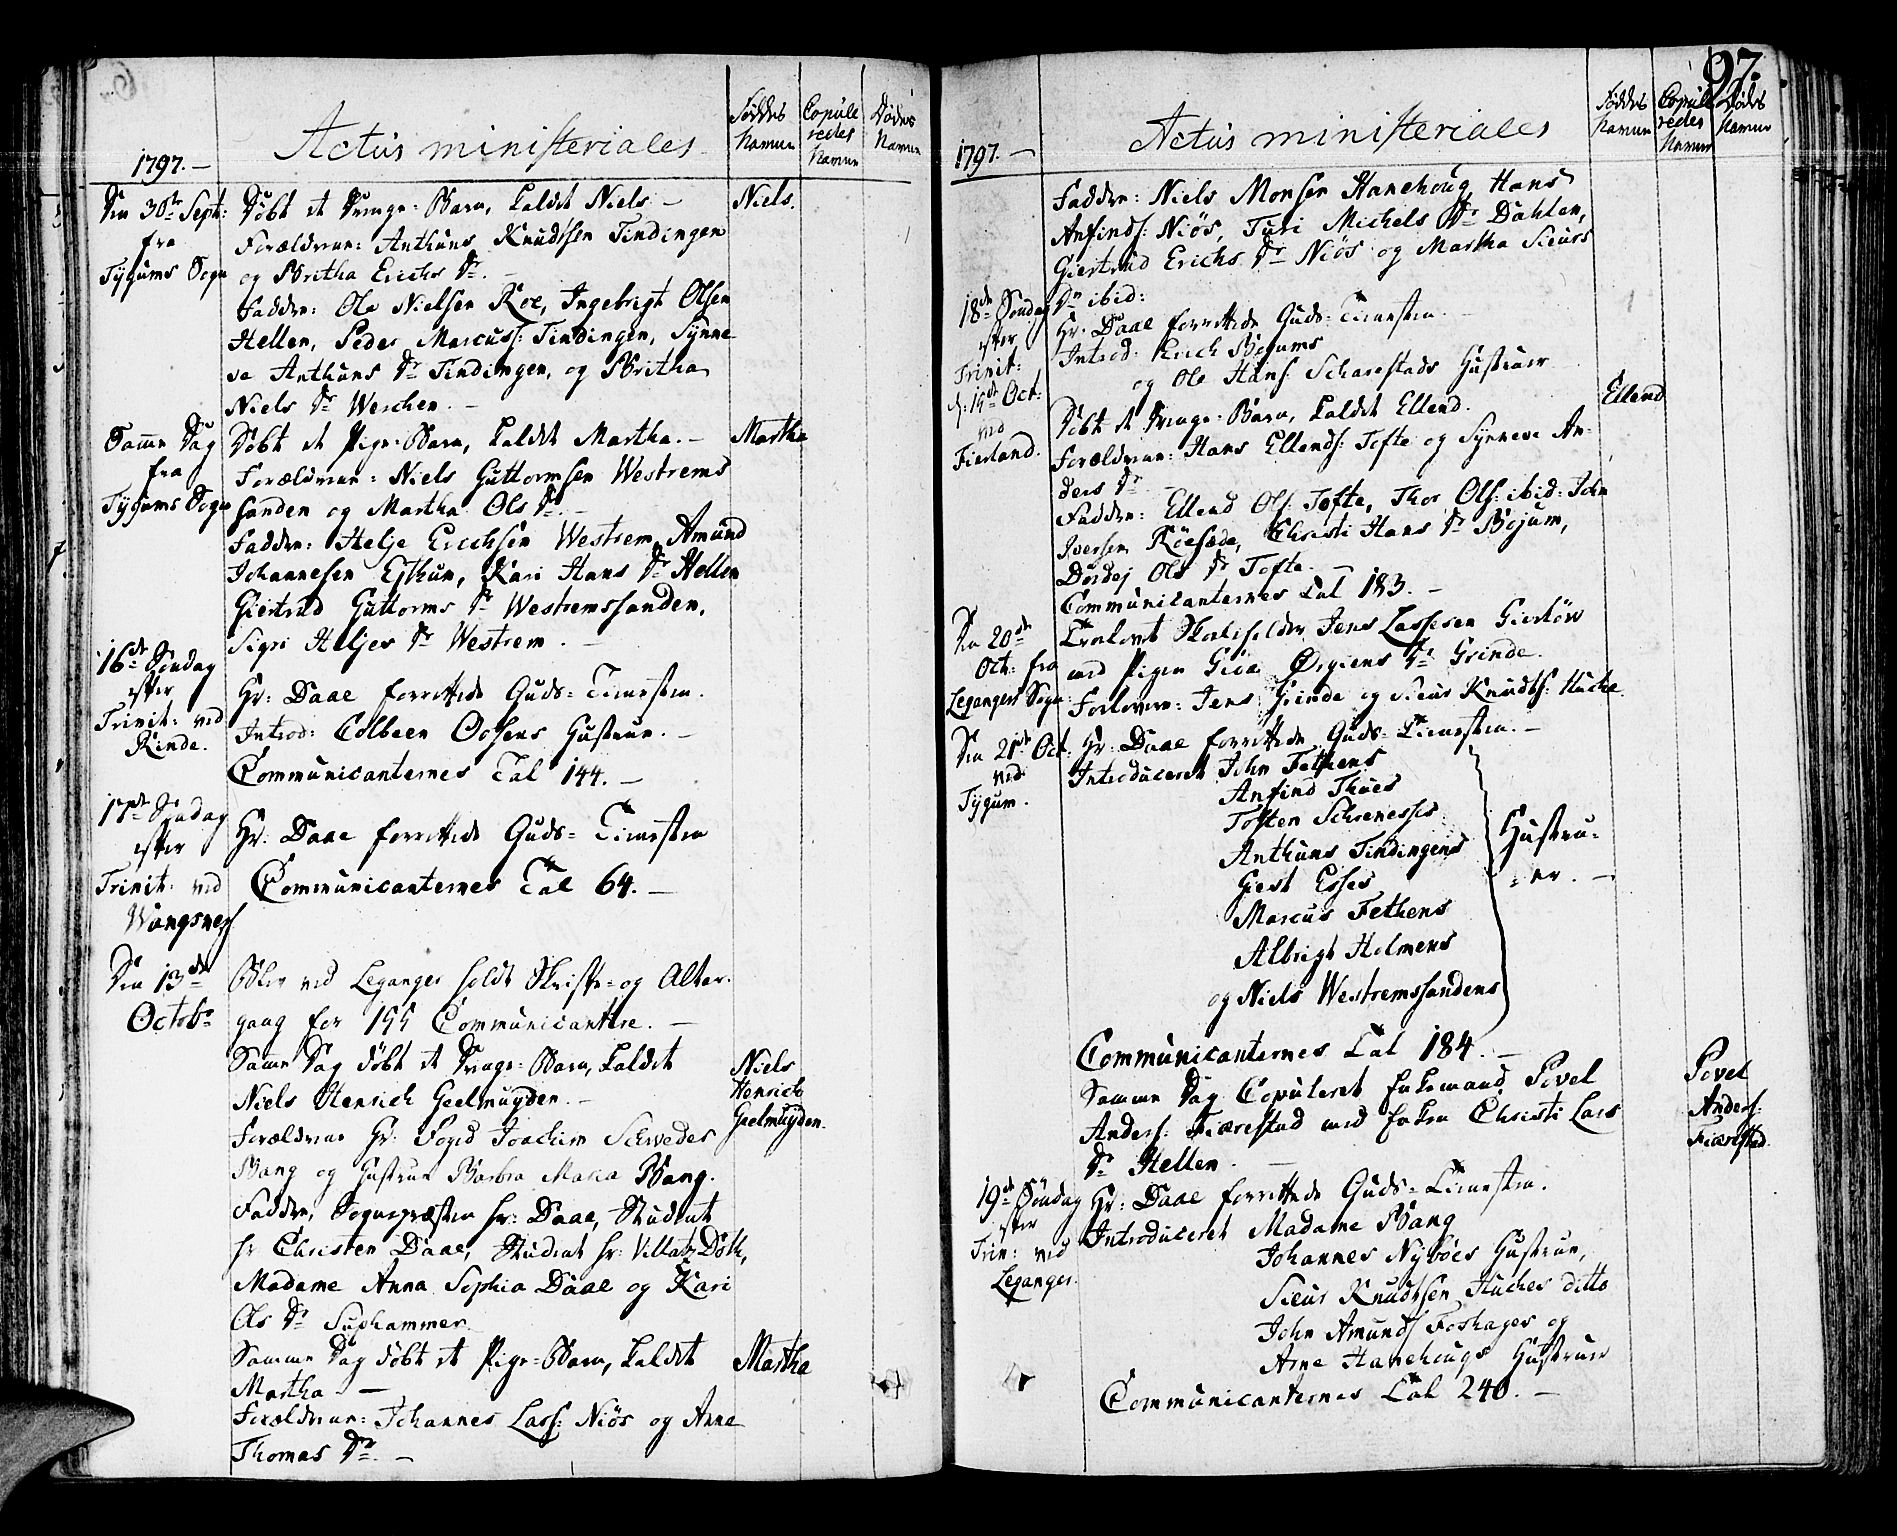 Actus ministeriales
Føddes Navne
Copulleredes Navne
Dødes Navne
1797. —
Den 30te Sept:
fra
Tygums Sogn
Døbt et Drenge-Barn, kaldet Niels —
Niels.
Forældrene: Anthuns Knudtsen Tindingen
og Britha Erichs Dr. —
Faddre: Ole Nielsen Roe, Ingebrigt Olsen
Hellen, Peder Marcuss: Tindingen, Synne-
ve Anthuns Dr Tindingen, og Britha
Niels Dr Werchen. —
Samme Dag
fra
Tygums Sogn
Døbt et Pige-Barn, kaldet Martha. —
Martha
Forældrene: Niels Guttormsen Westrems
sanden og Martha Ols Dr. —
Faddre: Helje Erichsen Westrem, Amund
Johannesen Eithun, Kari Hans Dr Hellen
Giertrud Guttorms Dr Westremssanden,
Sigri Heljes Dr Westrem.
16de Søndag
efter
Trinit: ved
Rinde.
Hr: Daae forrettede Guds-Tienesten.
Introd: Colbeen Oohens Hustrue. —
Communicanternes Tal 144. —
17de Søndag
efter
Trinit: ved
Wangsnes
Hr: Daae forrettede Guds-Tienesten
Communicanternes Tal 64. —
Den 13de
Octobr
Blev ved Leganger holdt Skrifte- og Alter-
gang for 155 Communicantere. —
Samme Dag døbt et Drenge-Barn, kaldet
Niels Henrich Geelmuyden. —
Niels
Henrich
Geelmuyden.
Forældrene Hr: Fogd Joachim Schweder
Bang og Hustrue Barbra Maria Bang.
Faddre, Sognepræsten Hr: Daae, Student
Hr Christen Daae, Student Hr: Villatz Døth,
Madame Anna Sophia Daae og Kari
Ols Dr Suphammer.
Samme Dag døbt et Pige-Barn, kaldet
Martha. —
Martha
Forældrene: Johannes Lass: Niøs og Anna
Thomas Dr. —
97.
Actus ministeriales
Føddes Navne
Copulleredes Navne
Dødes Navne
1797. —
Faddre: Niels Monsen Hanehoug, Hans
Anfinds: Niøs, Turi Michels Dr Dahlen,
Giertrud Erichs Dr Niøs og Martha Sieurs
Dr ibid:
18de Søndag
efter
Trinit:
d: 15de Oct:
ved
Fierland.
Hr: Daae forrettede Guds-Tienesten. —
Introd: Erich Bojums
og Ole Hans: Scharestads Hustruer
Døbt et Drenge-Barn, kaldet Ellend.
Ellend
Forældrene: Hans Ellends: Tofte og Synneve An-
ders Dr —
Faddre: Ellend Ols: Tofte, Thor Ols: ibid: John
Iversen Röesæde, Christi Hans Dr Bojum,
Dordej Ols Dr Tofte. —
Communicanternes Tal 183. —
Den 20de
Oct: fra
Leganger Sogn
Trolovet Skoleholder Jens Lassesen Gierløw
med Pigen Giøa Ørgiens Dr Grinde.
Forlovere: Jens Grinde og Sieur Knudts: Huche.
Den 21de Oct.
ved
Tygum.
Hr: Daae forrettede Guds-Tienesten. —
Introduceret John Fethens
Anfind Thues
Tosten Schrenesses
Anthuns Tindingens
Giert Esses
Marcus Fethens
Albrigt Holmens
og Niels Westremssandens
Hustru-
-er. —
Communicanternes Tal 184. —
Samme Dag Copuleret Enkemand Povel
Anders: Fiærestad med Enken Christi Lars
Dr Hellen. —
Povel
Anders:
Fiærestad.
19de Søndag
efter
Trin: ved
Leganger.
Hr: Daae forrettede Guds-Tienesten.
Introduceret Madame Bang
Johannes Nybøes Hustrue,
Sieur Knudtsen Huches ditto
John Amunds: Foshages og
Arne Hanehougs Hustruer
Communicanternes Tal 240. —